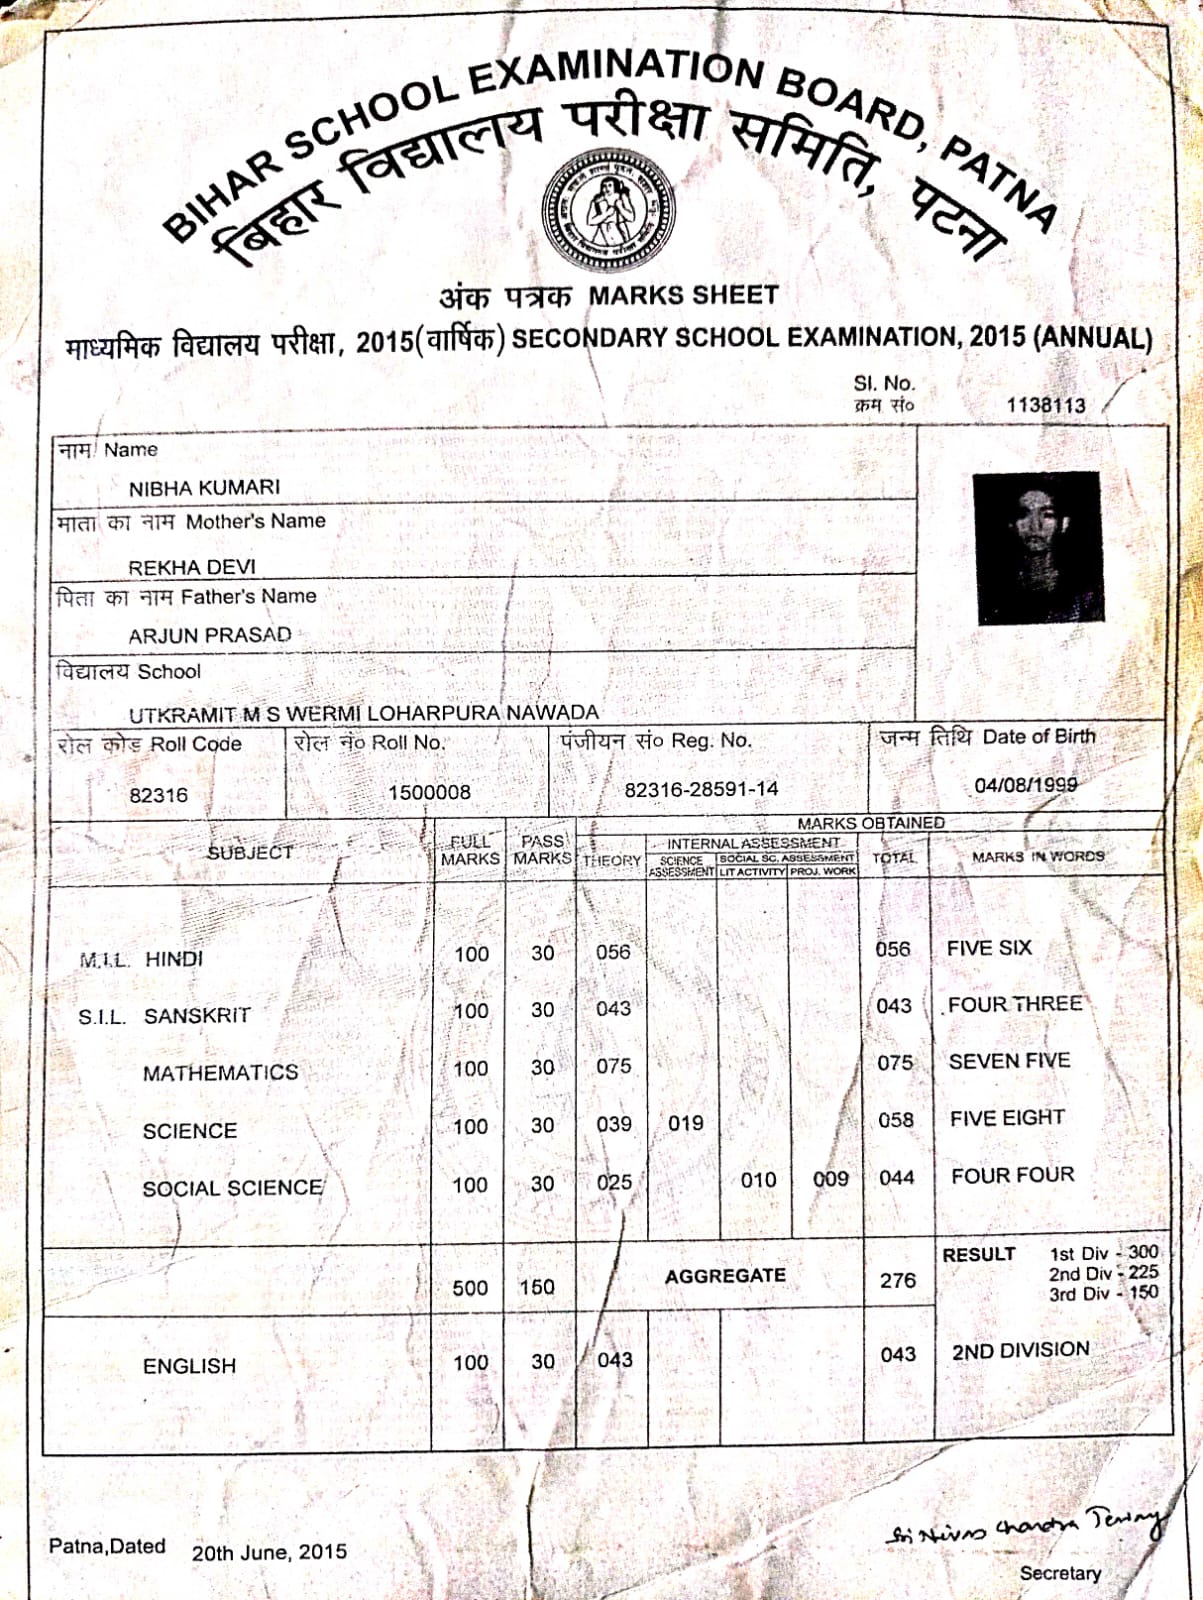 BIHAR SCHOOL EXAMINATION BOARD, PATNA
बिहार विद्यालय परीक्षा समिति, पटना
अंक पत्रक MARKS SHEET
माध्यमिक विद्यालय परीक्षा, 2015(वार्षिक) SECONDARY SCHOOL EXAMINATION, 2015 (ANNUAL)
Sl. No.
क्रम सं० 1138113
नाम/ Name
NIBHA KUMARI
माता का नाम Mother's Name
REKHA DEVI
पिता का नाम Father's Name
ARJUN PRASAD
विद्यालय School
UTKRAMIT M S WERMI LOHARPURA NAWADA
रोल कोड Roll Code रोल नं० Roll No. पंजीयन सं० Reg. No. जन्म तिथि Date of Birth
82316 1500008 82316-28591-14 04/08/1999
SUBJECT FULL MARKS PASS MARKS MARKS OBTAINED
THEORY INTERNAL ASSESSMENT TOTAL MARKS IN WORDS
SCIENCE ASSESSMENT SOCIAL SC. ASSESSMENT
LIT ACTIVITY PROJ. WORK
M.I.L. HINDI 100 30 056 056 FIVE SIX
S.I.L. SANSKRIT 100 30 043 043 FOUR THREE
MATHEMATICS 100 30 075 075 SEVEN FIVE
SCIENCE 100 30 039 019 058 FIVE EIGHT
SOCIAL SCIENCE 100 30 025 010 009 044 FOUR FOUR
500 150 AGGREGATE 276 RESULT 1st Div - 300
2nd Div - 225
3rd Div - 150
ENGLISH 100 30 043 043 2ND DIVISION
Patna,Dated 20th June, 2015
Secretary